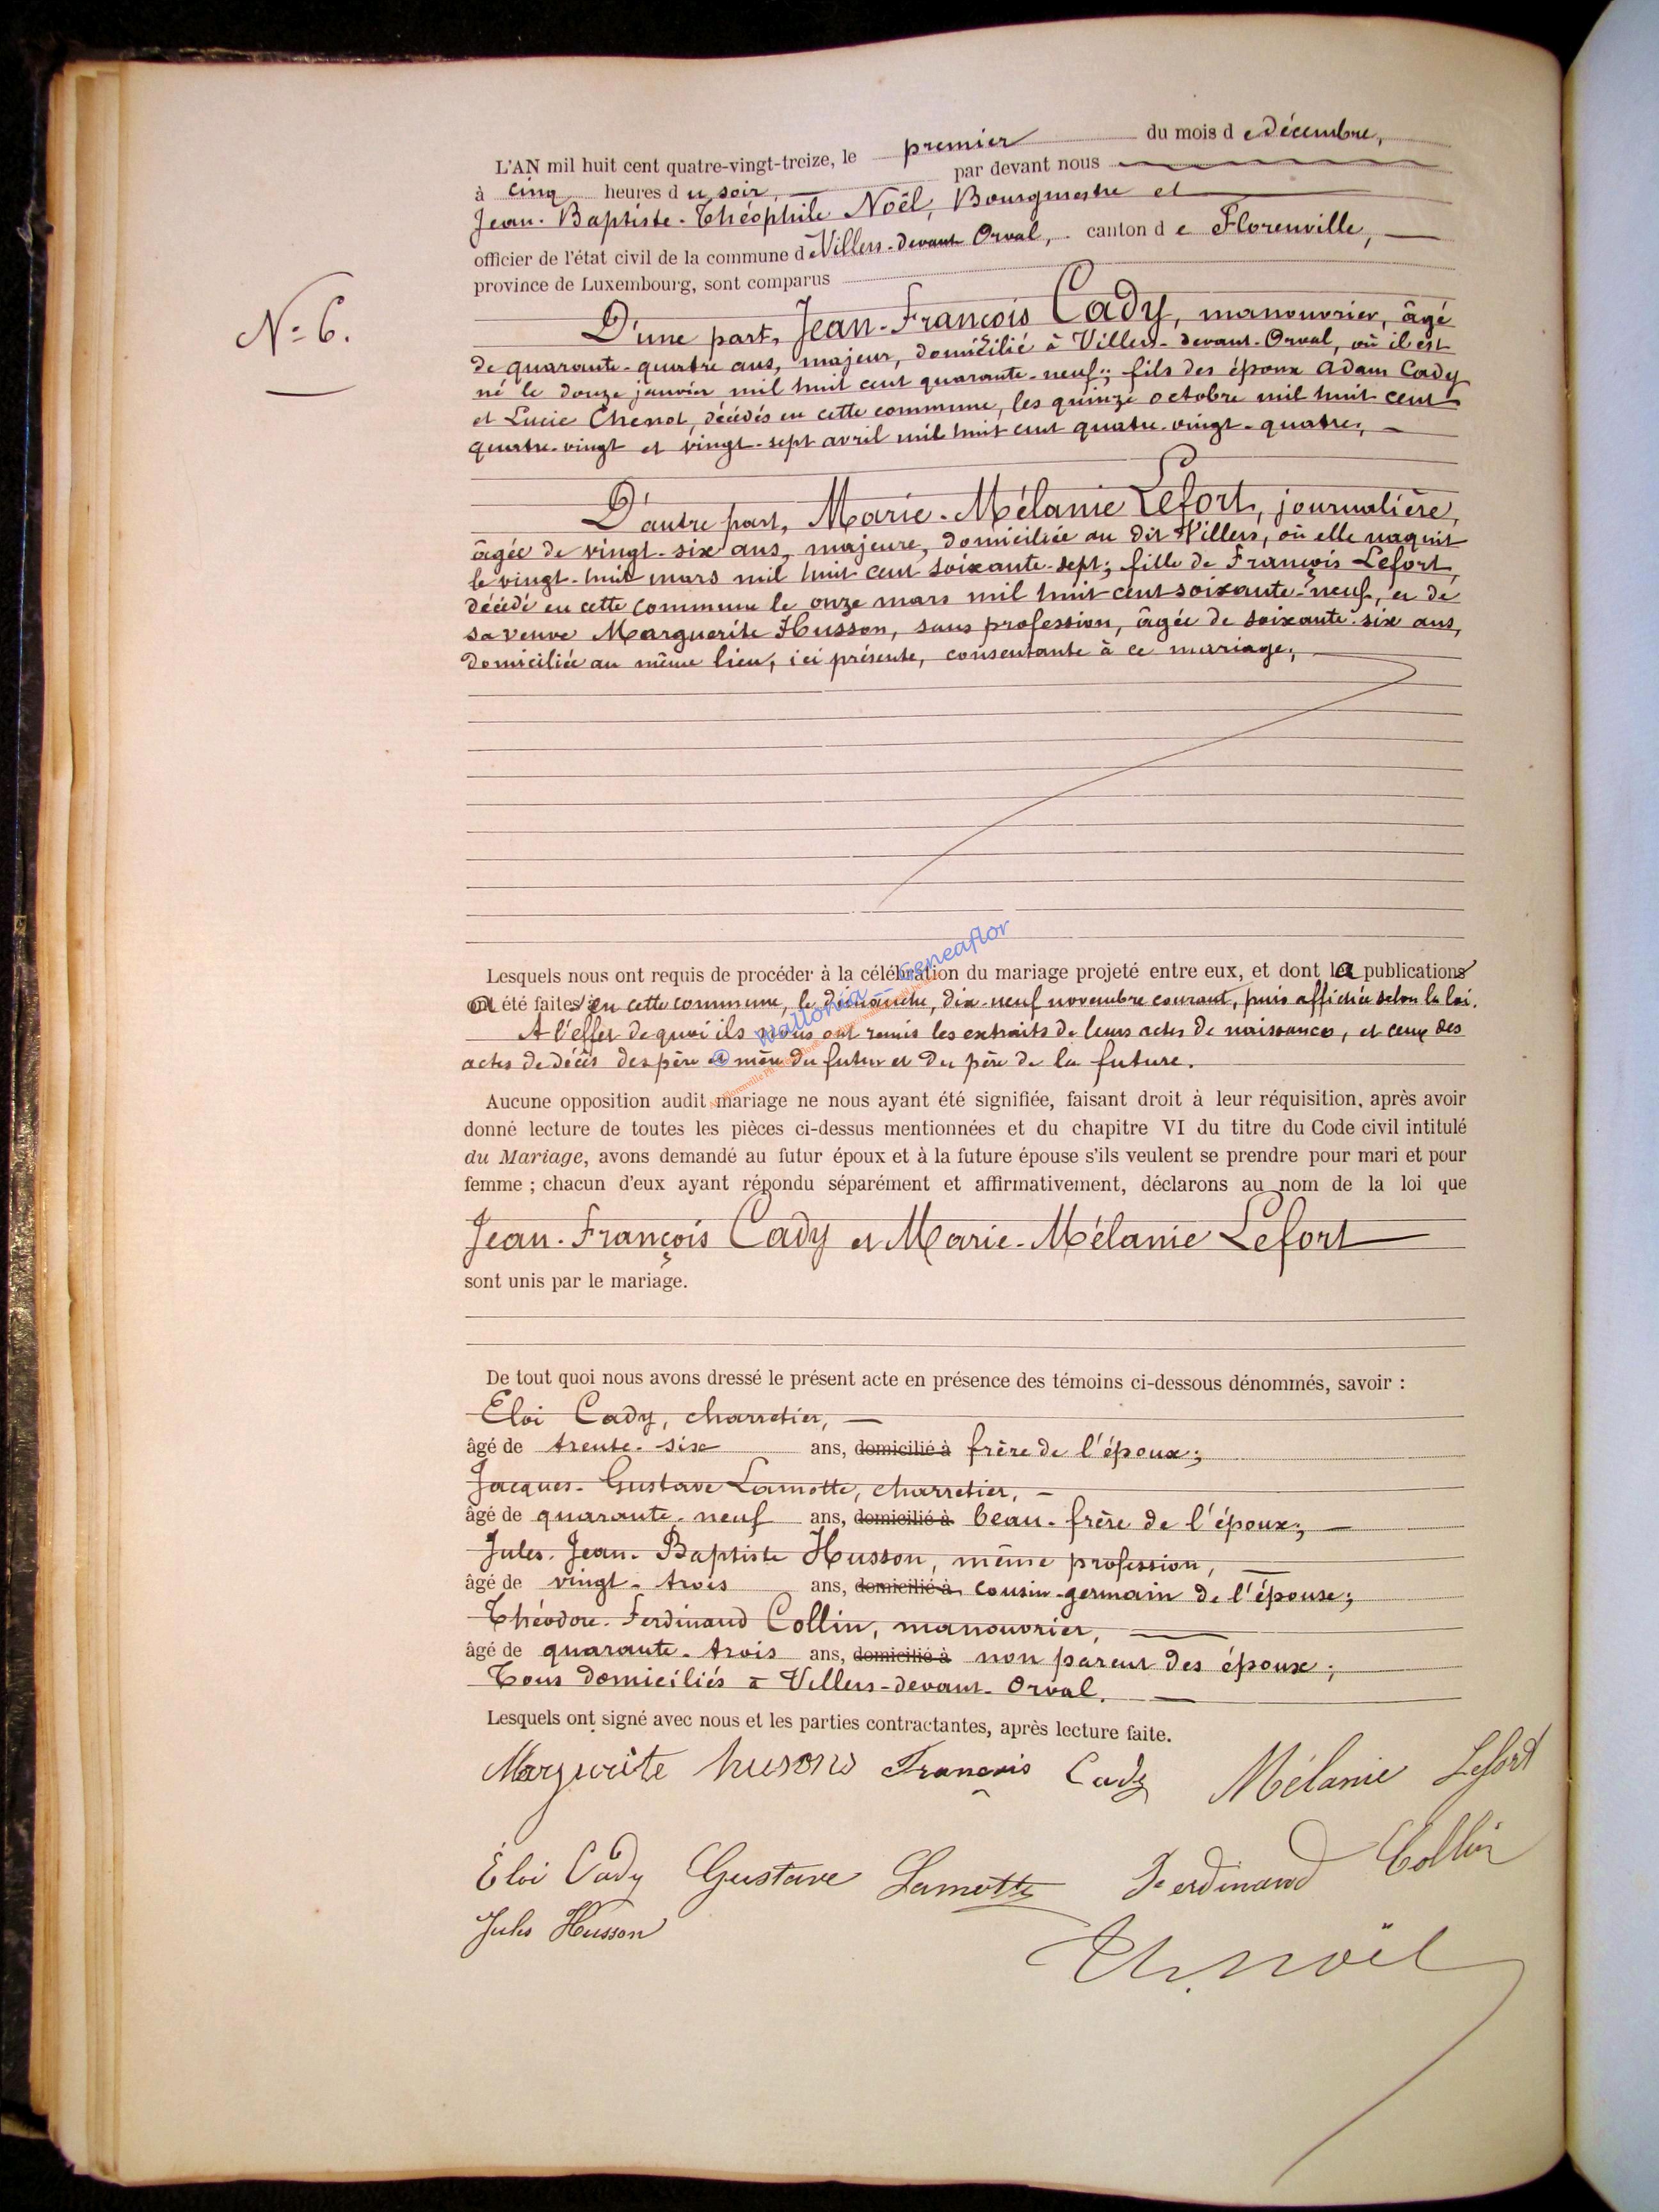 L'AN mil huit cent quatre-vingt-treize, le premier du mois d e décembre,
à cinq heures d u soir, par devant nous
Jean-Baptiste-Théophile Noël, Bourgmestre et
officier de l'état civil de la commune d e Villers-devant-Orval, canton d e Florenville,
province de Luxembourg, sont comparus
N° 6.
D'une part, Jean-François Cady, manouvrier, âgé
de quarante-quatre ans, majeur, domicilié à Villers-devant-Orval, où il est
né le douze janvier mil huit cent quarante-neuf; fils des époux Adam Cady
et Lucie Chenot, décédés en cette commune, les quinze octobre mil huit cent
quatre-vingt et vingt-sept avril mil huit cent quatre-vingt-quatre,
D'autre part, Marie-Mélanie Lefort, journalière,
âgée de vingt-six ans, majeure, domiciliée au dit Villers, où elle naquit
le vingt-huit mars mil huit cent soixante-sept; fille de François Lefort,
décédé en cette commune le onze mars mil huit cent soixante-neuf, et de
sa veuve Marguerite Husson, sans profession, âgée de soixante-six ans,
domiciliée au même lieu, ici présente, consentante à ce mariage,
Lesquels nous ont requis de procéder à la célébration du mariage projeté entre eux, et dont la publication
a été faite en cette commune, le dimanche, dix-neuf novembre courant, puis affichée selon la loi.
A l'effet de quoi ils nous ont remis les extraits de leurs actes de naissance, et ceux des
actes de décès des père et mère du futur et du père de la future.
Wallonia - Geneaflor
Aucune opposition audit mariage ne nous ayant été signifiée, faisant droit à leur réquisition, après avoir
donné lecture de toutes les pièces ci-dessus mentionnées et du chapitre VI du titre du Code civil intitulé
du Mariage, avons demandé au futur époux et à la future épouse s'ils veulent se prendre pour mari et pour
femme ; chacun d'eux ayant répondu séparément et affirmativement, déclarons au nom de la loi que
Jean-François Cady et Marie-Mélanie Lefort
sont unis par le mariage.
De tout quoi nous avons dressé le présent acte en présence des témoins ci-dessous dénommés, savoir :
Eloi Cady, charretier,
âgé de trente-six ans, domicilié à frère de l'époux;
Jacques-Gustave Lamotte, charretier,
âgé de quarante-neuf ans, domicilié à beau-frère de l'époux;
Jules-Jean-Baptiste Husson, même profession,
âgé de vingt-trois ans, domicilié à cousin-germain de l'épouse;
Théodore-Ferdinand Collin, manouvrier,
âgé de quarante-trois ans, domicilié à non parent des époux;
Tous domiciliés à Villers-devant-Orval.
Lesquels ont signé avec nous et les parties contractantes, après lecture faite.
Marguerite husons François Cady Mélanie Lefort
Éloi Cady Gustave Lamotte Ferdinand Collin
Jules Husson
Th. Noël